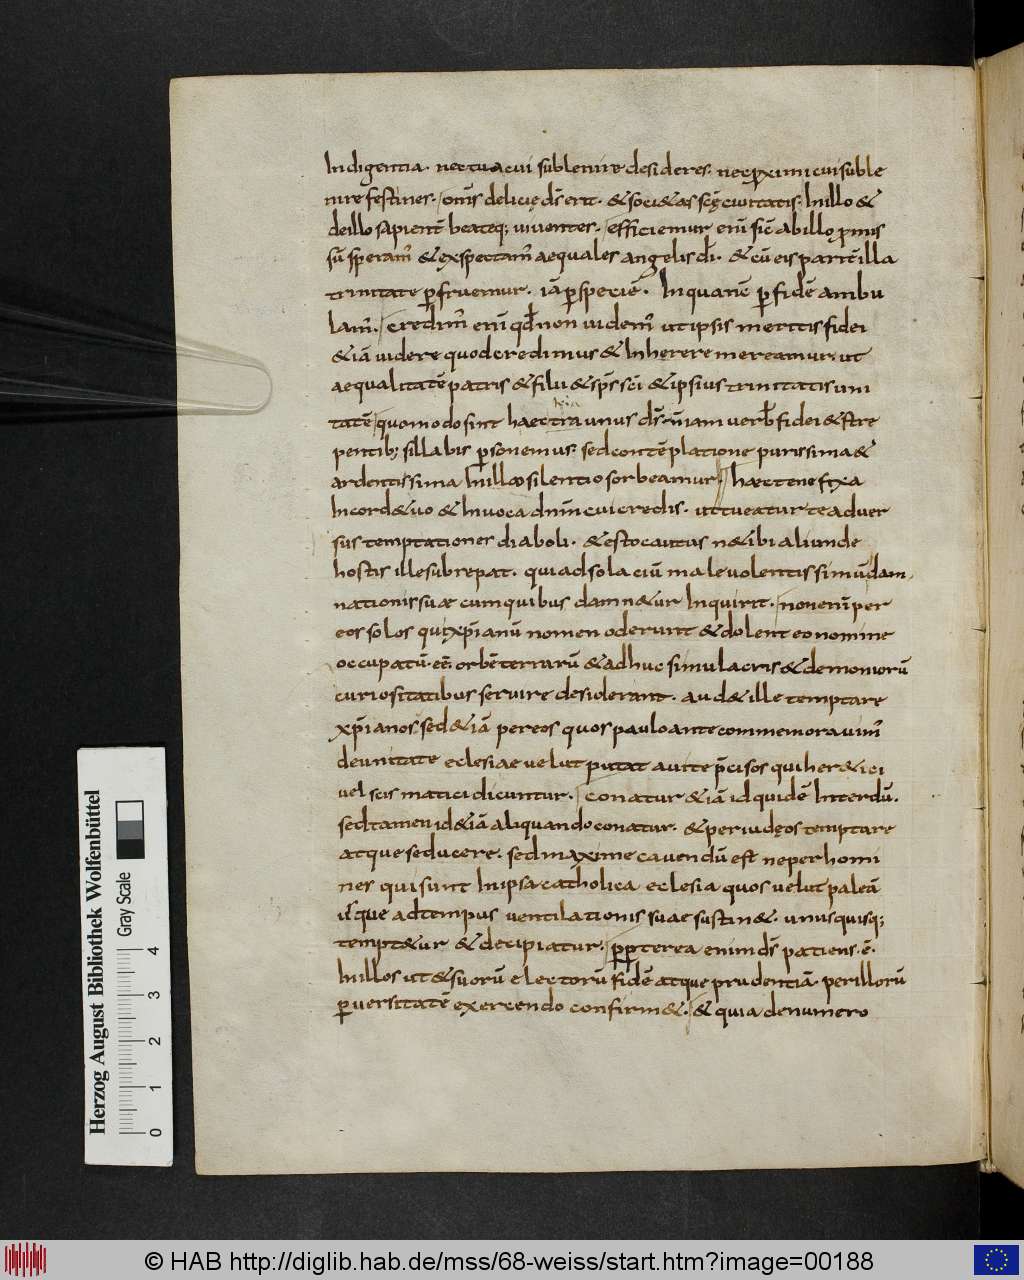 Indigentia. nec tua cui sublenire desideres. nec proximi cui suble
nire festines. om̅s delicię d̅s erit. & soci&as sc̅ę ciuitatis. In illo &
de illo sapient̅ beateq; uiuentes. efficiemur eni̅ sic̅ ab illo promis
su̅ speram̅ & exspectam̅ aequales angelis d̅i. & cu̅ eis parit̅ illa
trinitate perfruemur. ia̅ per specie̅. In qua nc̅ per fide̅ ambu
lam̅. credim̅ eni̅ qd̅ non uidem̅ ut ipsis meritis fidei
&ia̅ uidere quod credimus & Inherere mereamur. ut
aequalitate̅ patris & filii & sp̅s sc̅i & ipsius trinitatis uni
tate̅ quomodo sint haec tria unus d̅s. n̅ iam uerb̅ fidei & stre
pentib; sillabis personemus. sed conte̅platione purissima &
ardentissima In illo silentio sorbeamur. haec tene fixa
In corde tuo & Inuoca dn̅m cui credis. ut tueatur te aduer
sus temptationes diaboli. & esto cautus ne tibi aliunde
hostis ille subrepat. qui ad solaciu̅ maleuolentissimu̅ dam
nationis suae cum quibus damnetur Inquirit. non eni̅ per
eos solos qui xp̅ianu̅ nomen oderunt & dolent eo nomine
occupatu̅ ee̅ orbe̅ terraru̅ & adhuc simulacris & demonioru̅
curiositatibus seruire desiderant. aud& ille temptare
xp̅ianos. sed &ia̅ per eos quos paulo ante commemorauim̅
de unitate eclesiae uelut putata uite p̅cisos qui her&ici
uel scismatici dicuntur. conatur &ia̅ id quide̅ Interdu̅.
sed tamen id &ia̅ aliquando conatur. & per iudęos temptare
atque seducere. sed maxime cauendu̅ est ne per homi
nes qui sunt In ipsa catholica eclesia quos uelut palea̅
usque ad tempus uentilationis suae sustin&. unusquisq;
tempt&ur & decipiatur. propterea enim d̅s patiens e̅.
In illos ut & suoru̅ electoru̅ fide̅ atque prudentia̅ per illoru̅
peruersitate̅ exercendo confirm&. & quia de numero
Herzog August Bibliothek Wolfenbüttel
Gray Scale
0 1 2 3 4
© HAB http://diglib.hab.de/mss/68-weiss/start.htm?image=00188